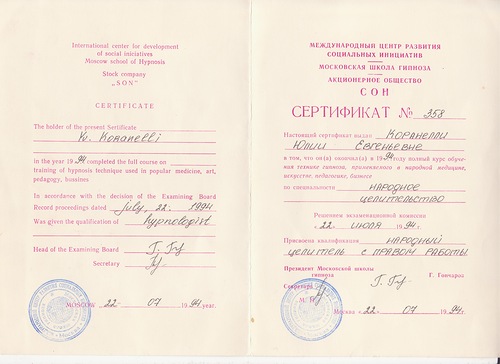 International center for development
of social iniciatives
Moscow school of Hypnosis
Stock company
„SON"
CERTIFICATE
The holder of the present Sertificate
Ju. Koranelli
in the year 1994 completed the full course on
training of hypnosis technique used in popular medicine, art,
pedagogy, bissines
In accordance with the decision of the Examining Board
Record proceedings dated July 22. 1994
Was given the qualification of hypnologist
Head of the Examining Board
Secretary
MOSCOW 22 07 1994 year.
МЕЖДУНАРОДНЫЙ ЦЕНТР РАЗВИТИЯ
СОЦИАЛЬНЫХ ИНИЦИАТИВ
МОСКОВСКАЯ ШКОЛА ГИПНОЗА
АКЦИОНЕРНОЕ ОБЩЕСТВО
СОН
СЕРТИФИКАТ № 358
Настоящий сертификат выдан КОРАНЕЛЛИ
ЮЛИИ ЕВГЕНЬЕВНЕ
в том, что он(а) окончил(а) в 1994 году полный курс обуче-
ния технике гипноза, применяемого в народной медицине,
искусстве, педагогике, бизнесе
по специальности НАРОДНОЕ
ЦЕЛИТЕЛЬСТВО
Решением экзаменационной комиссии
с 22 ИЮЛЯ 1994 г.
Присвоена квалификация НАРОДНЫЙ
ЦЕЛИТЕЛЬ С ПРАВОМ РАБОТЫ
Президент Московской школы
гипноза Г. Гончаров
Секретарь
М. П.
Москва «22» 07 1994 г.